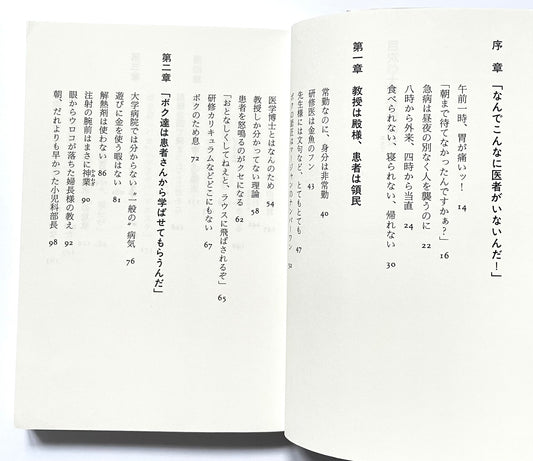 序　章　「なんでこんなに医者がいないんだ！」
午前一時、胃が痛いッ！　14
「朝まで待てなかったんですかぁ？」　16
急病は昼夜の別なく人を襲うのに　22
八時から外来、四時から当直　24
食べられない、寝られない、帰れない　30
第一章　教授は殿様、患者は領民
常勤なのに、身分は非常勤　40
研修医は金魚のフン　43
先生様には文句など、とてもとても　47
医学博士とはなんのため　54
教授しか分かってない理論　58
患者を怒鳴るのがクセになる　62
「おとなしくしてねえと、ラウスに飛ばされるぞ」　65
研修カリキュラムなどどこにもない　67
ボクのため息　72
第二章　「ボク達は患者さんから学ばせてもらうんだ」
大学病院では分からない〝一般の〟病気　76
遊びに金を使う暇はない　81
解熱剤は使わない　86
注射の腕前はまさに神業　90
かみわざ
眼からウロコが落ちた婦長様の教え　92
朝、だれよりも早かった小児科部長　98